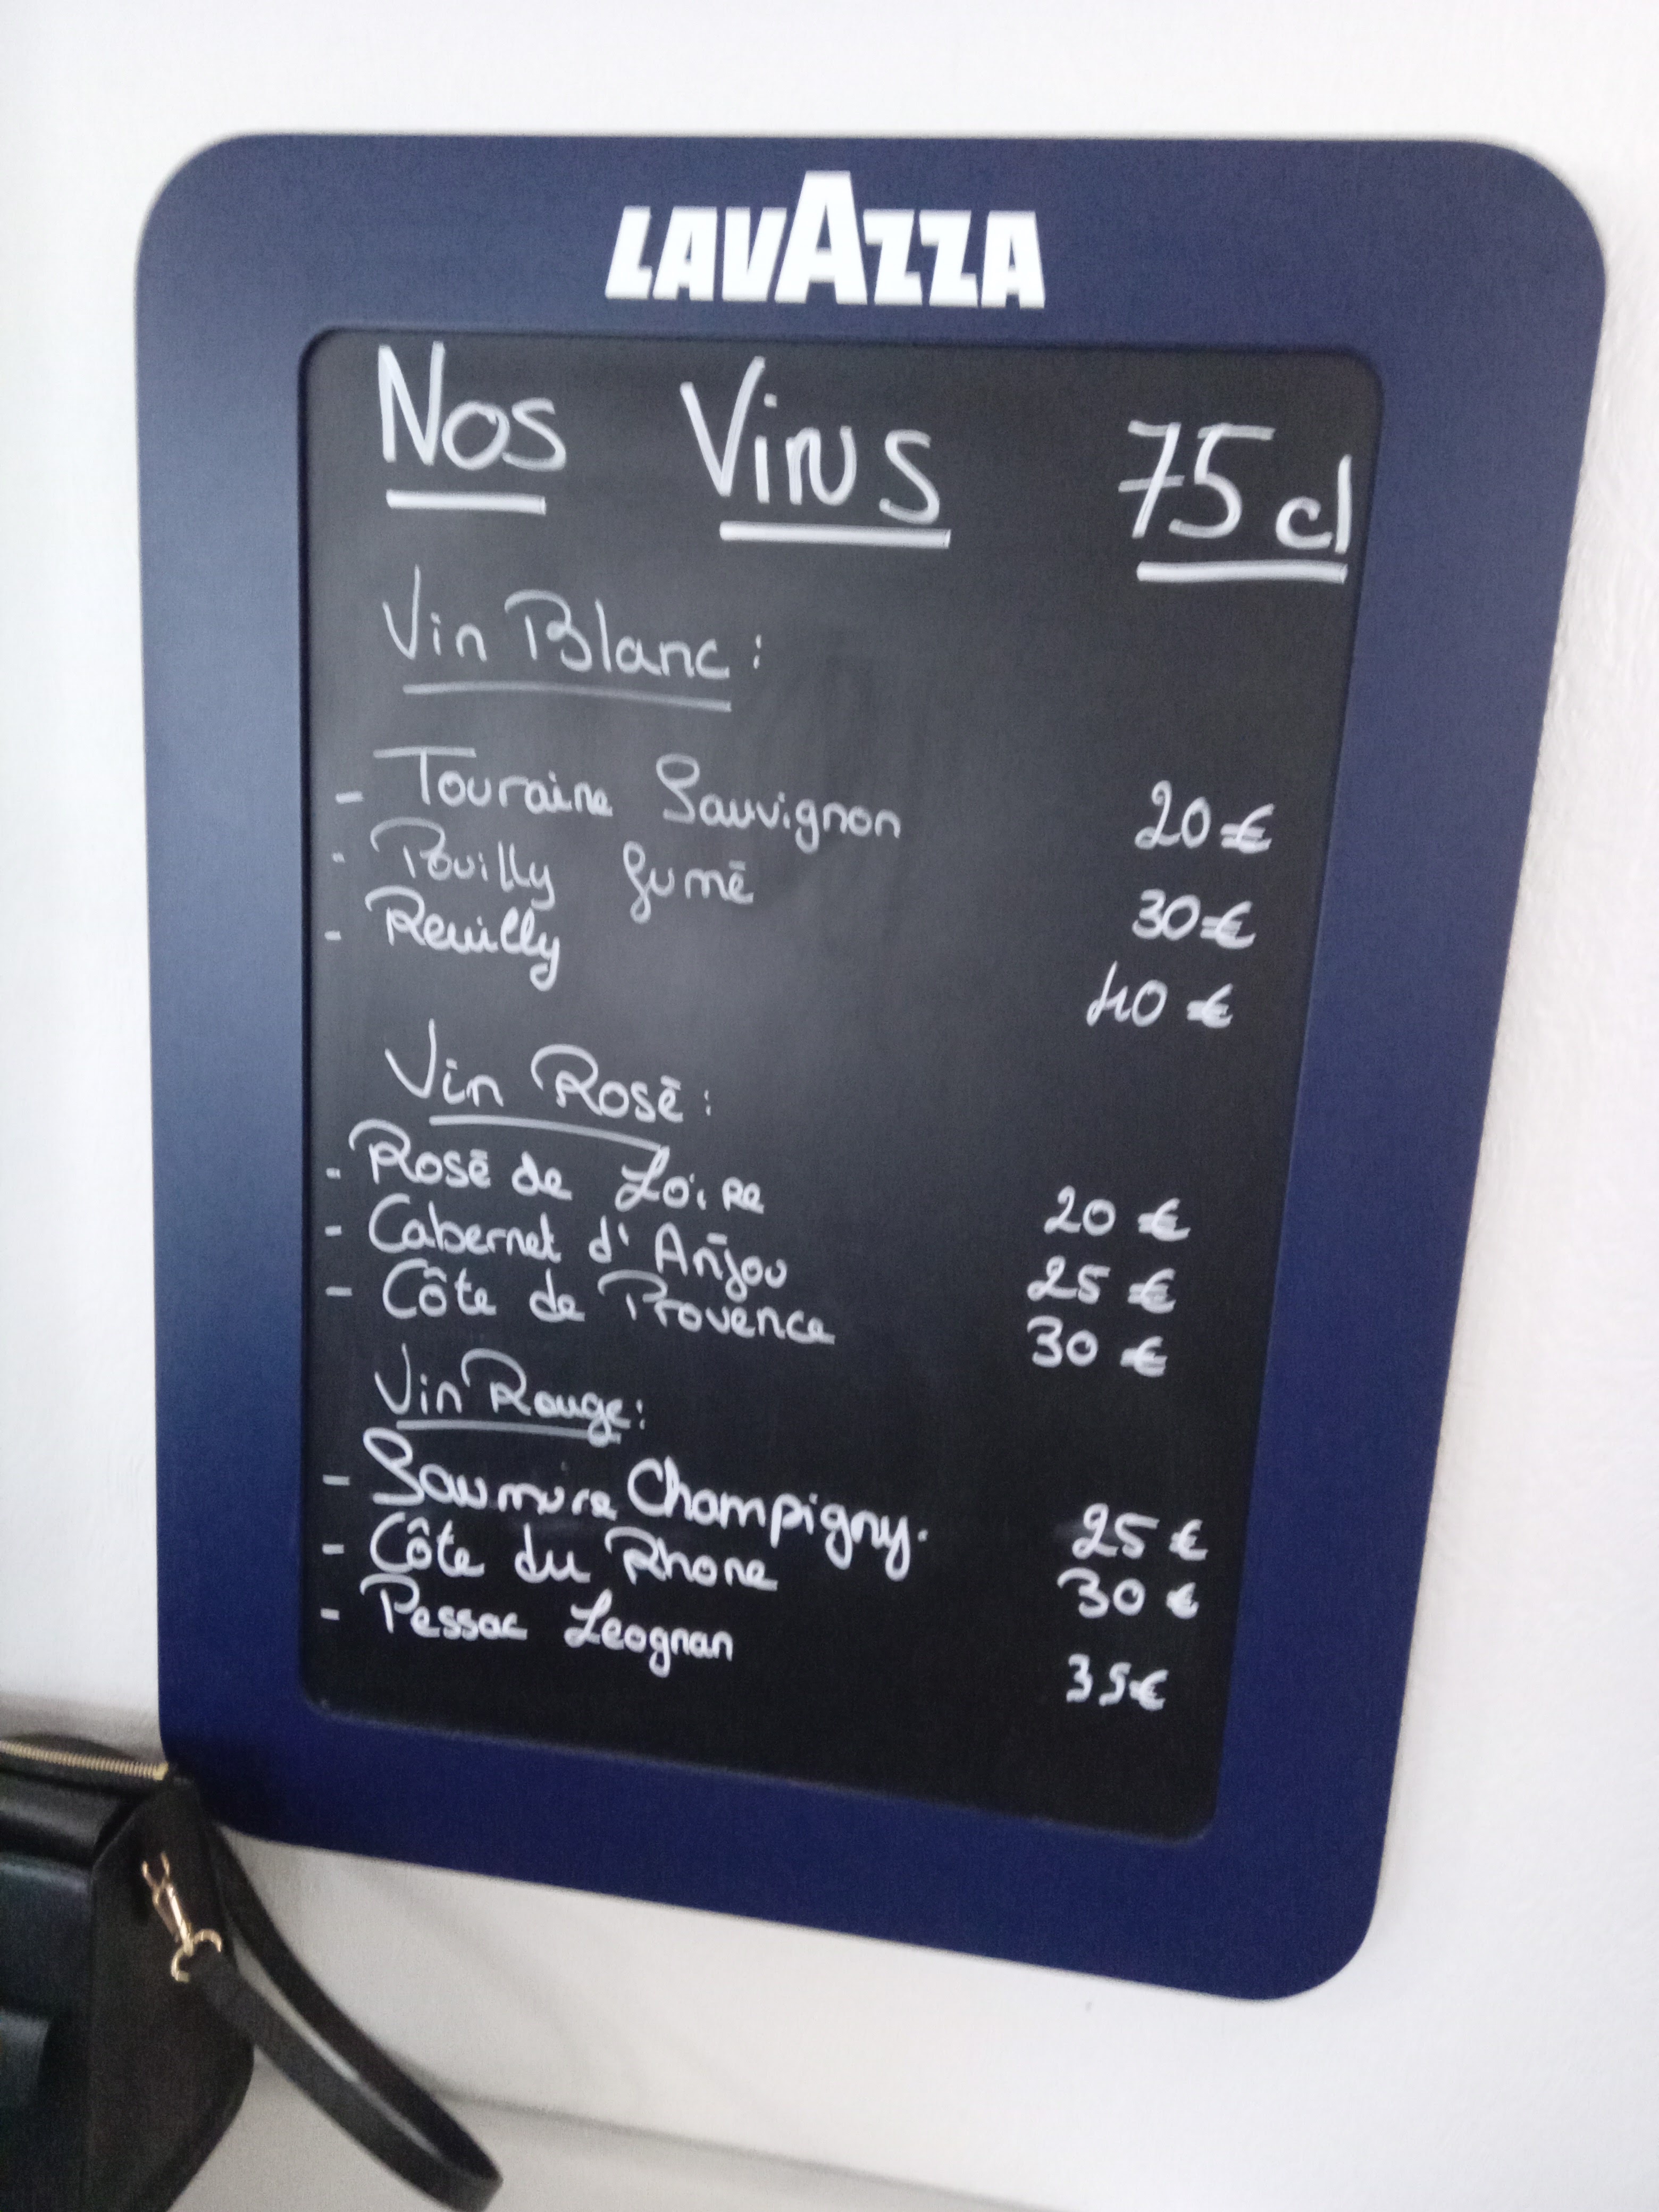 LAVAZZA
Nos Vins 75cl
Vin Blanc :
- Touraine Sauvignon 20€
- Pouilly fumé 30€
- Reuilly 40€
Vin Rosé :
- Rosé de Loire 20€
- Cabernet d'Anjou 25€
- Côte de Provence 30€
Vin Rouge :
- Saumure Champigny. 25€
- Côte du Rhone 30€
- Pessac Leognan 35€